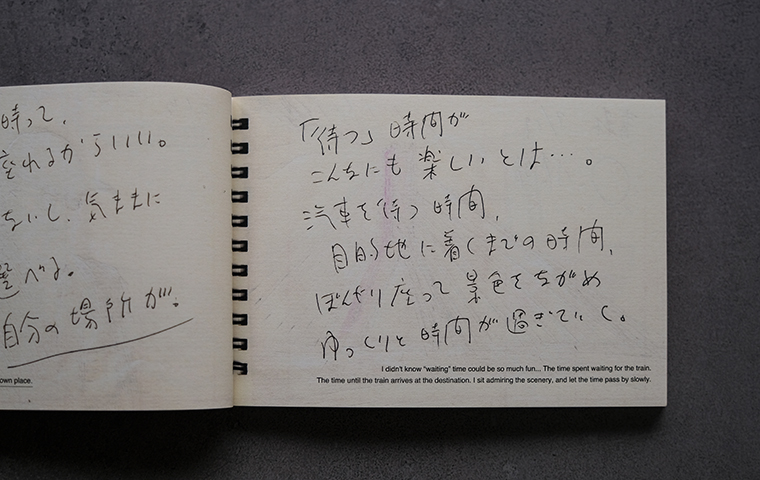 時って、
座れるからいい。
ないし、気ままに
選べる。
自分の場所が。
own place.
「待つ」時間が
こんなにも楽しいとは…。
汽車を待つ時間、
目的地に着くまでの時間、
ぼんやり座って景色をながめ
ゆっくりと時間が過ぎていく。
I didn't know "waiting" time could be so much fun... The time spent waiting for the train.
The time until the train arrives at the destination. I sit admiring the scenery, and let the time pass by slowly.